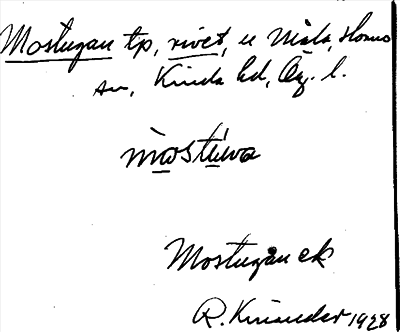 Mostugan tp, rivet, u Måla, Horns
sn, Kinda hd, Ög. l.
mòstúwa
Mostugan ek
R. Kinnander 1928